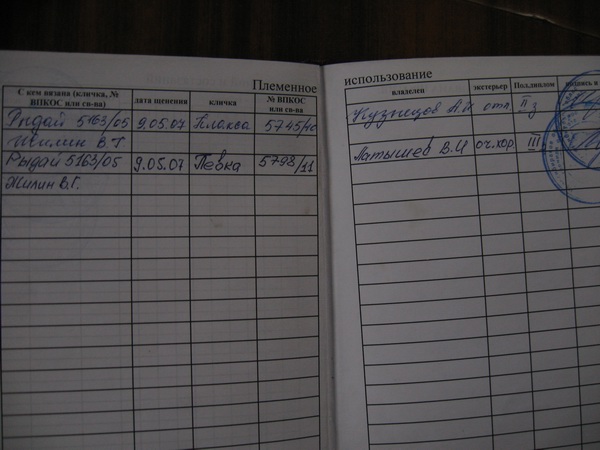 Племенное использование
С кем вязана (кличка, № ВПКОС или св-ва) дата щенения кличка № ВПКОС или св-ва владелец экстерьер Пол.диплом
Рыдай 5163/05 9.05.07 Клякса Кузнецов А.И отл II
Жилин В.Г
Рыдай 5163/05 9.05.07 Певка 5798/11 Латышев В.И оч.хор III
Жилин В.Г.